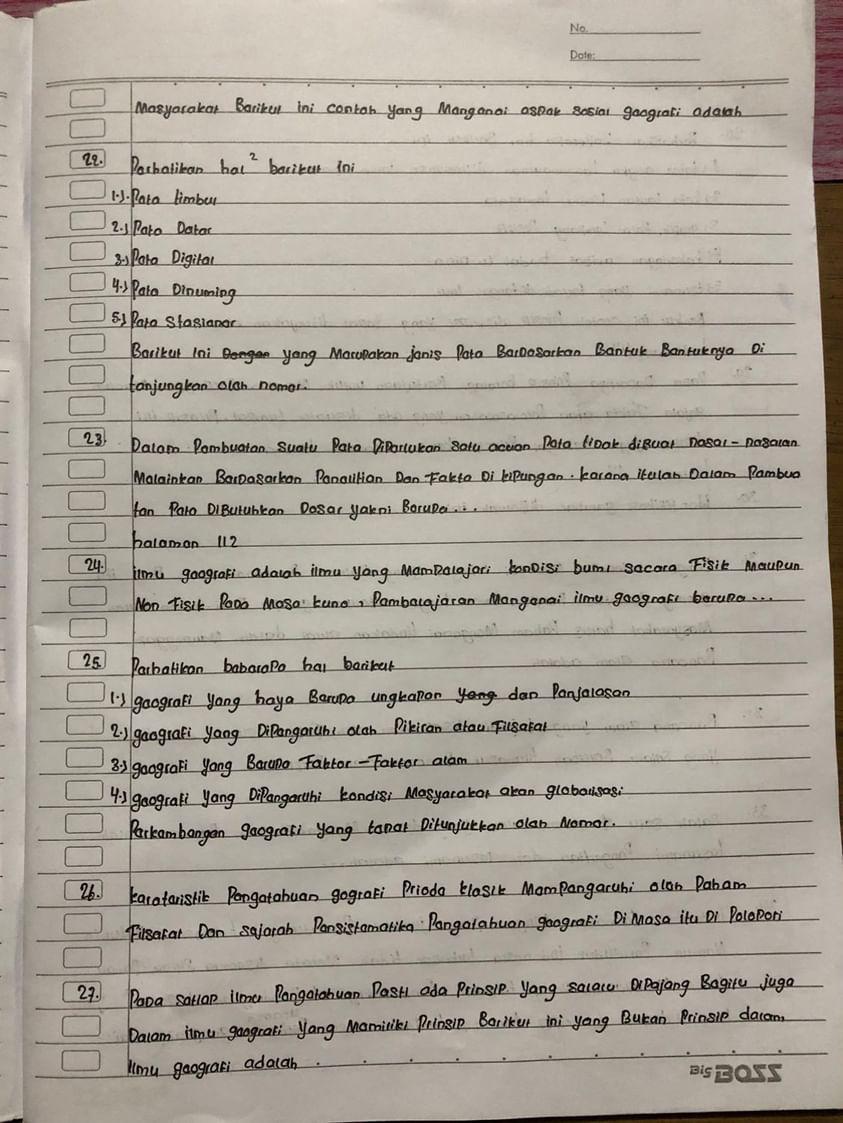 No.
Date:
Masyarakat Barikut ini contoh yang Manganai aspak sosial gaografi adalah
22. Parhatikan hal² barikut ini
1.) Pata timbul
2.) Pata Datar
3.) Pata Digital
4.) Pata Dinuming
5.) Pata Stasianar
Barikut ini Dangan yang Marupakan janis Pata BarDasarkan Bantuk Bantuknya Di
tanjungkan olah nomar.
23. Dalam Pambuatan suatu Pata DiParlukan satu acuan Pata tidak dibuat Dasar-Dasaran
Malainkan BarDasarkan Panalitian Dan Fakta Di kipungan. karana itulah Dalam Pambua
tan Pata DiButuhkan Dasar yakni Barupa...
halaman 112
24. ilmu gaografi adalah ilmu yang Mampalajari konDisi bumi sacara Fisik Maupun
Non Fisik Pada Masa kuno, Pambalajaran Manganai ilmu gaografi barupa...
25. Parhatikan babarapa hal barikut
1.) gaografi yang haya Barupa ungkapan yang dan Panjalasan
2.) gaografi yang DiPangaruhi olah Pikiran atau Filsafat
3.) gaografi yang Barupa Faktor-Faktor alam
4.) gaografi yang DiPangaruhi kondisi Masyarakat akan globalisasi
Parkambangan gaografi yang tapat Ditunjukkan olah Nomar.
26. karataristik Pangatahuan gografi Prioda klasik Mampangaruhi olah Paham
Filsafat Dan sajarah Pansistamatika Pangatahuan gaografi Di Masa itu Di Palapori
27. Pada satiap ilmu Pangatahuan Pasti ada Prinsip yang salalu DiPajang Bagitu juga
Dalam ilmu gaografi yang Mamiliki Prinsip Barikut ini yang Bukan Prinsip dalam
ilmu gaografi adalah
Big BOSS